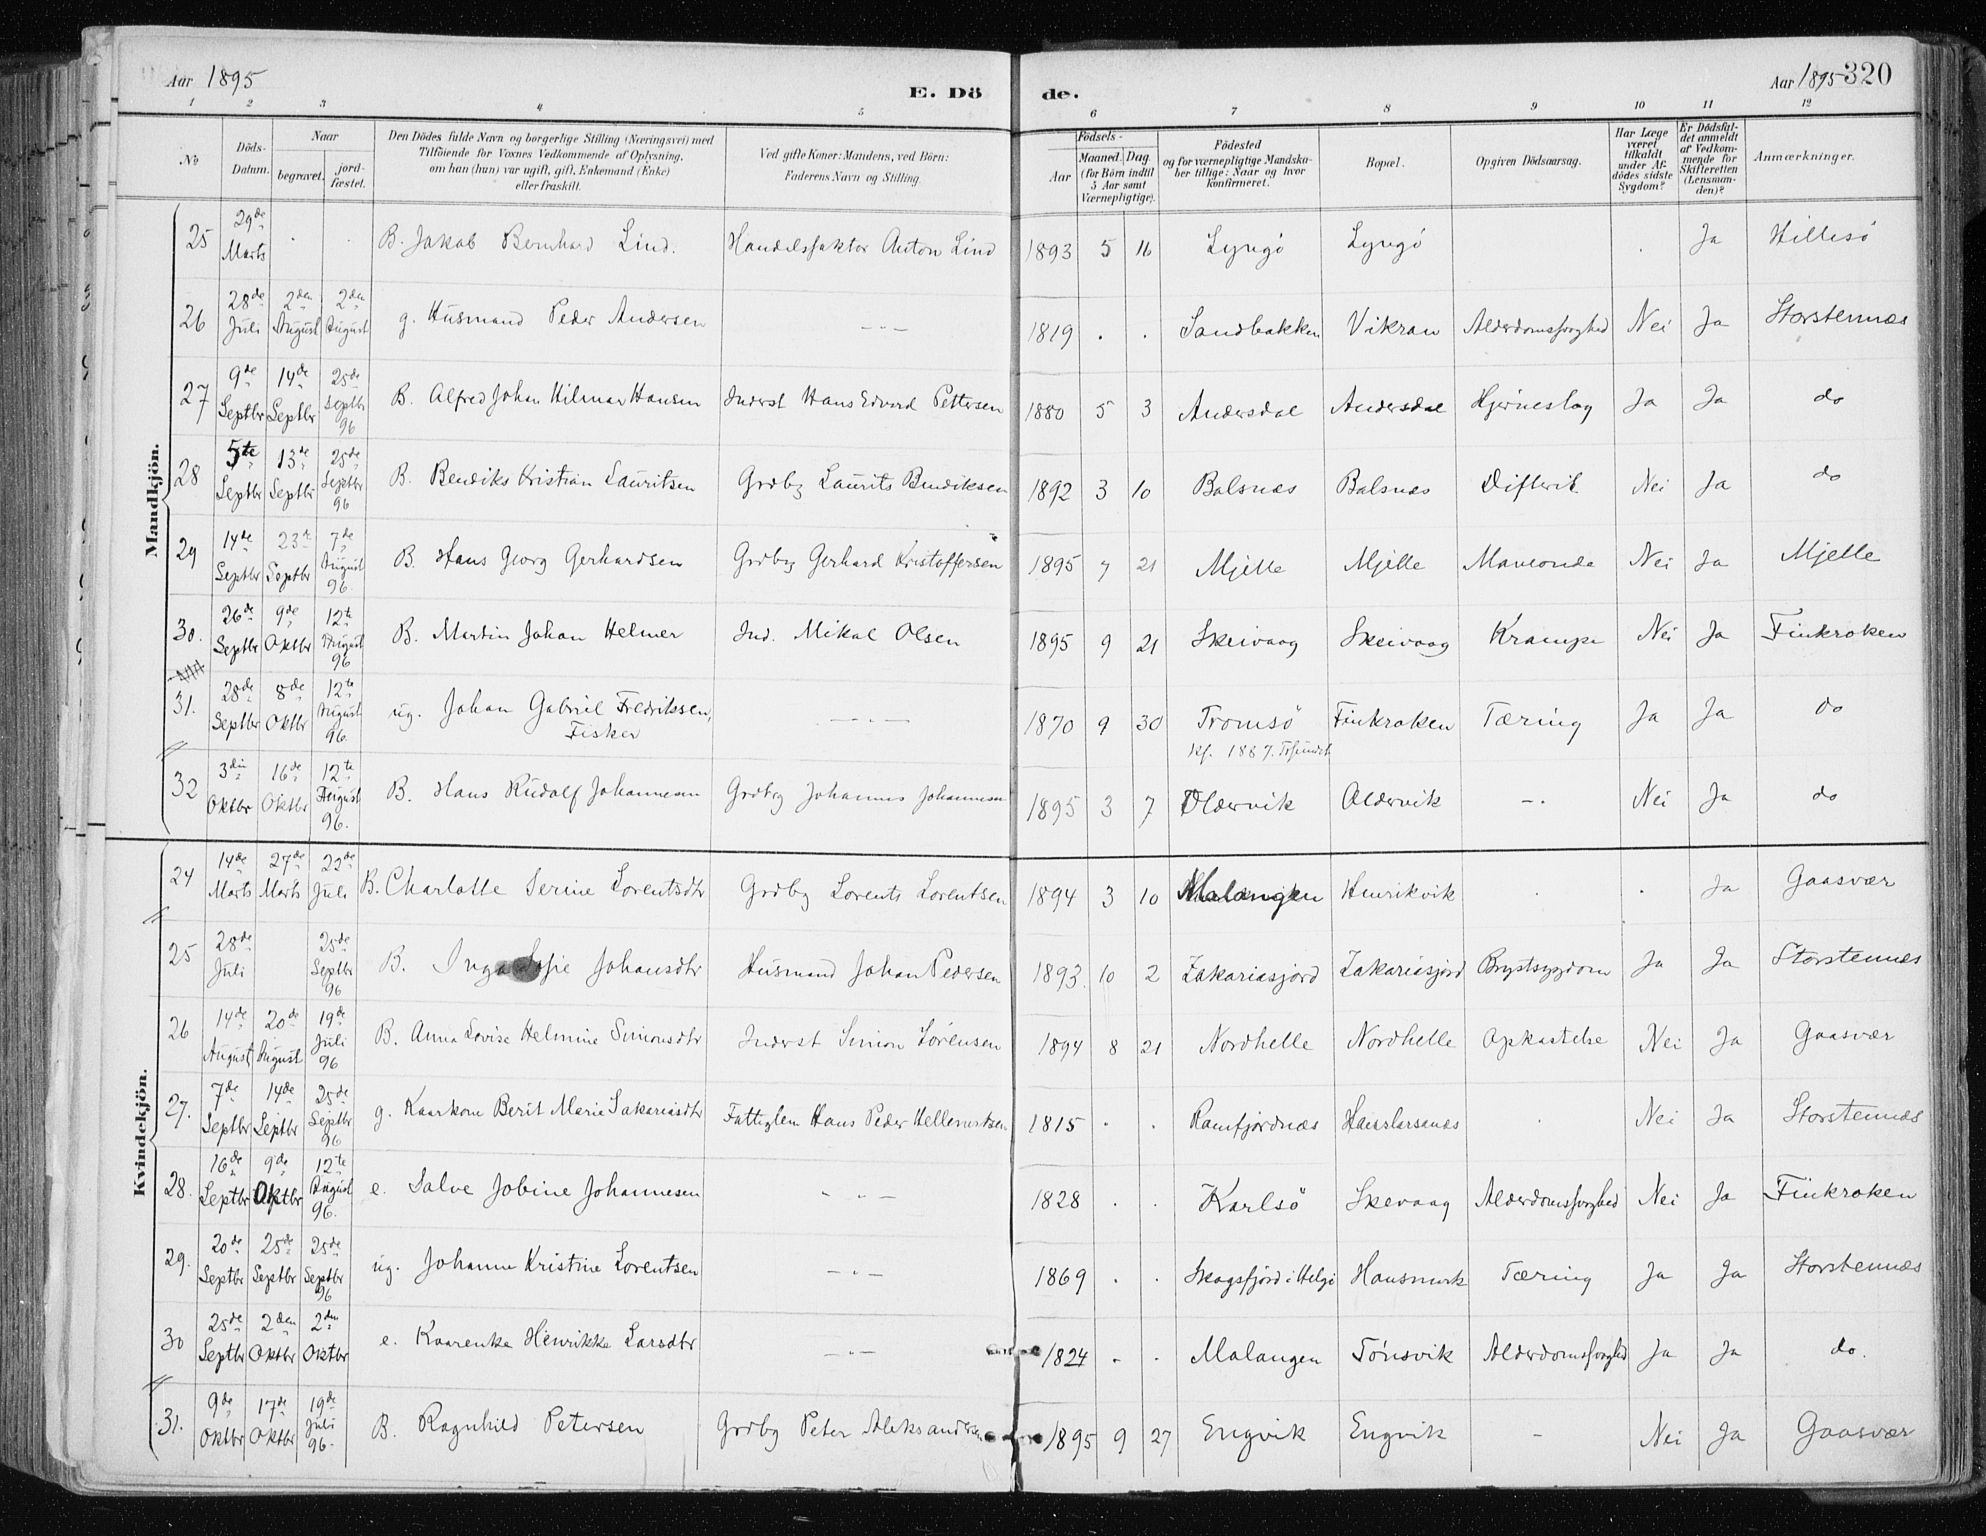 Aar 1895 E. Dö de. Aar 1895 320
1 2 3 4 5 6 7 8 9 10 11 12
No Döds-Datum. Naar begravet. jordfæstet. Den Dödes fulde Navn og borgerlige Stilling (Næringsvei) med Tilföiende for Voxnes Vedkommende af Oplysning, om han (hun) var ugift, gift, Enkemand (Enke) eller fraskilt. Ved gifte Koner: Mandens, ved Börn: Faderens Navn og Stilling. Födsels- Aar Maaned. Dag. (for Börn indtil 5 Aar samt Værnepligtige). Födested og for værnepligtige Mandskaber tillige: Naar og hvor konfirmeret. Bopæl. Opgiven Dödsaarsag. Har Læge været tilkaldt under Afdödes sidste Sygdom? Er Dödsfaldet anmeldt af Vedkommende for Skifteretten (Lensmanden)? Anmærkninger.
Mandkjön.
25 29de Marts . . B. Jakob Bernhard Lind. Handelsfaktor Anton Lind 1893 5 16 Lyngö Lyngö . Ja Hillesö
26 28de Juli 2den August 2den August g. Husmand Peder Andersen — " — 1819 . . Sandbakken Vikran Alderdomssvaghed Nei Ja Storstennæs
27 9de Septbr 14de Septbr 25de Septbr 96 B. Alfred Johan Hilmar Hansen Inderst Hans Edvard Pettersen 1880 5 3 Andersdal Andersdal Hjerneslag Ja Ja do
28 5te Septbr 13de Septbr 25de Septbr 96 B. Bendiks Kristian Lauritsen Grdby Laurits Bendiksen 1892 3 10 Balsnæs Balsnæs Difterit Nei Ja do
29 14de Septbr 23de Septbr 7de August 96. B. Hans Georg Gerhardsen Grdby Gerhard Kristoffersen 1895 7 21 Mjelle Mjelle Maveonde Nei Ja Mjelle
30. 26de Septbr 9de Oktbr 12te August 96 B. Martin Johan Helmer Ind. Mikal Olsen 1895 9 21 Skeivaag Skeivaag Krampe Nei Ja Finkroken
31. 28de Septbr 8de Oktbr 12te August 96. ug. Johan Gabriel Fredrikssen, Fisker — " — 1870 9 30 Tromsö Finkroken Tæring Ja Ja do
kf. 1887.
32 3die Oktbr 16de Oktbr 12te August 96. B. Hans Rudolf Johannesen Grdby Johannes Johannesen 1895 3 7 Oldervik Oldervik — . Nei Ja do
Kvindekjön.
24 14de Marts 27de Marts 22de Juli B. Charlotte Serine Lorentsdtr Grdby Lorents Lorentsen 1894 3 10 Malangen Henrikvik . . Ja Gaasvær
25 28de Juli 25de Septbr 96 B. Inga Sofie Johansdtr Husmand Johan Pedersen 1893 10 2 Zakariasjord Zakariasjord Brystsygdom Ja Ja Storstennæs
26 14de August 20de August 19de Juli 96 B. Anna Lovise Helmine Simonsdtr Inderst Simon Sørensen 1894 8 21 Nordhelle Nordhelle Opkastelse Nei Ja Gaasvær
27. 7de Septbr 14de Septbr 25de Septbr 96 g. Kaarkone Berit Marie Sakariasdtr Fattiglem Hans Peder 1815 . . Ramfjordnæs Hans Larsanæs . Nei Ja Storstennæs
28. 16de Septbr 9de Oktbr 12te August 96. e. Salve Jobine Johannesen — " — 1828 . . Karlsö Skevaag Alderdomssvaghed Nei Ja Finkroken
29. 20de Septbr 25de Septbr 25de Septbr 96 ug. Johanne Kristine Lorentsen — " — 1869 . . Skogsfjord i Helgö Hansmerk Tæring Ja Ja Storstennæs
30 25de Septbr 2den Oktbr 2den Oktbr e. Kaarenke Henrikke Larsdtr — " — 1824 . . Malangen Tönsvik Alderdomssvaghed Ja Ja do.
31. 9de Oktbr 17de Oktbr 19de Juli 96. B. Ragnhild Petersen Grdby Peter Aleksandersen 1895 9 27 Engvik Engvik — Nei Ja Gaasvær